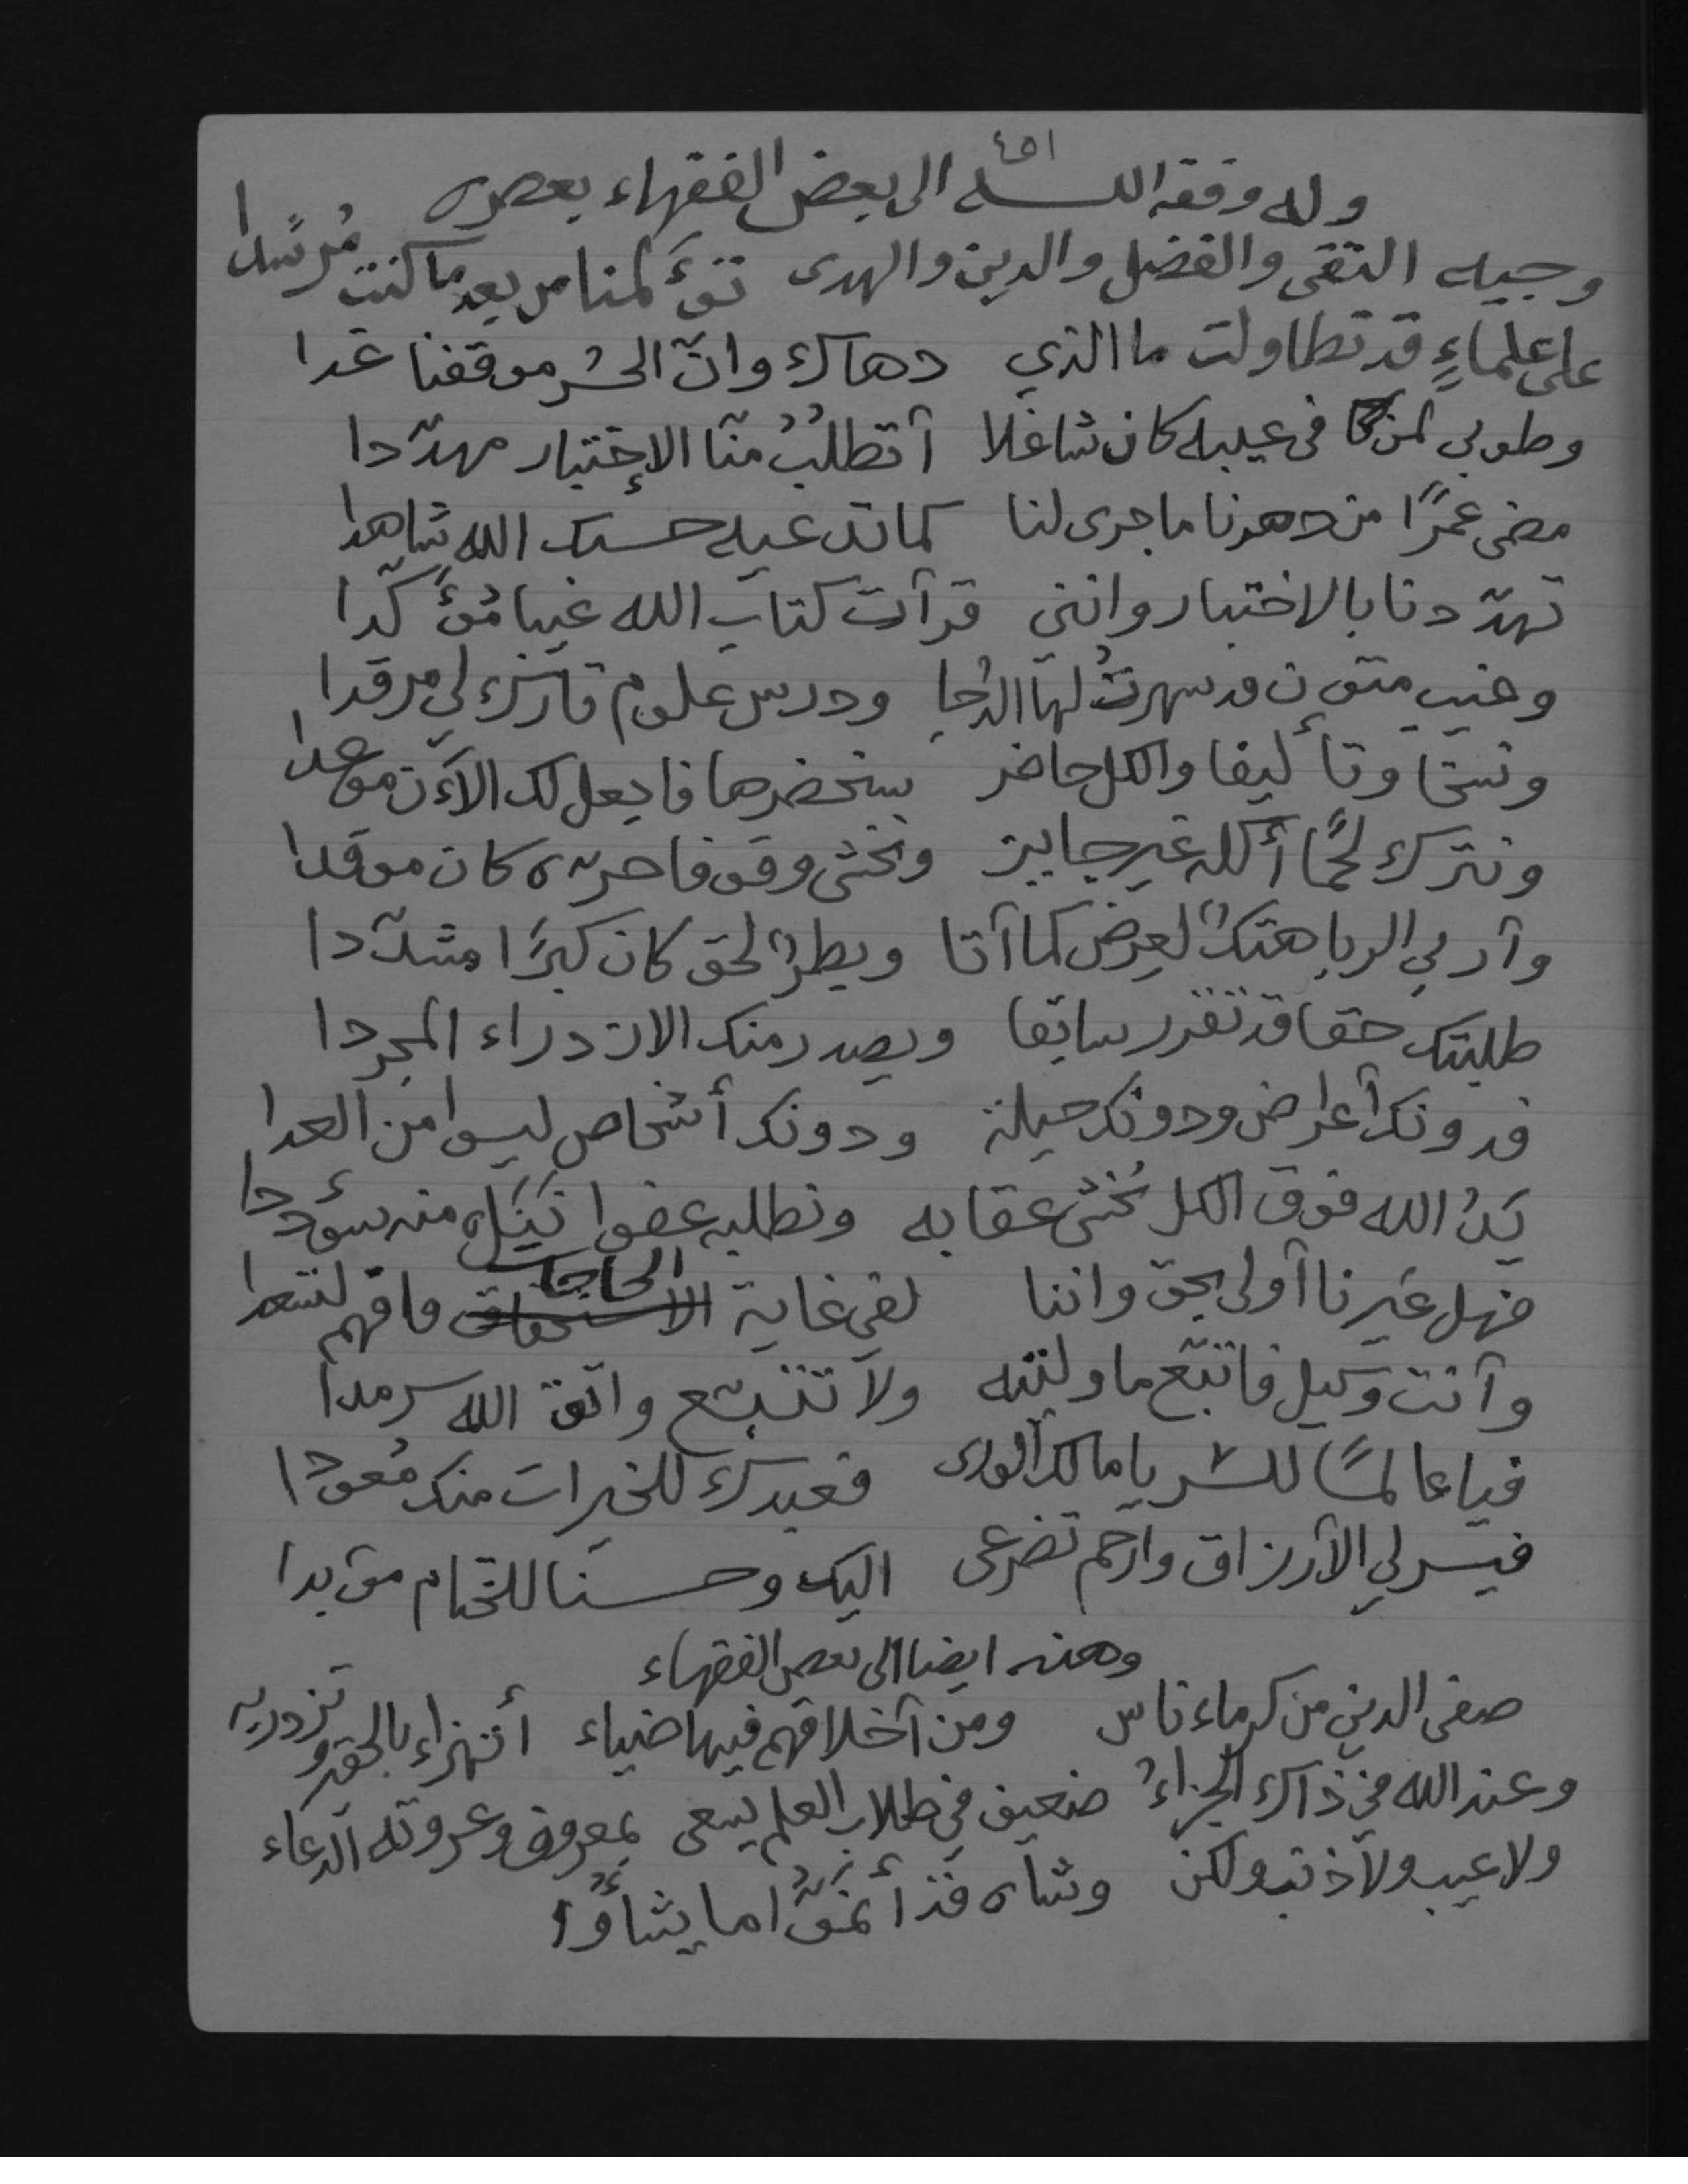 ١٥٤
وله وفقه الله الى بعض الفقهاء بعصره
وجيه التقى والفضل والدين والهدى تؤلمنا من بعد ما كنت مُرشدا
على علماءٍ قد تطاولت ما الذي دهاك وانّ الحشر موقفنا غدا
وطوبى لمن في عيبه كان شاغلا أتطلبُ منّا الإختبار مهدّدا
مضى عمرًا من دهرنا ما جرى لنا كما تدعيه حسبك الله شاهدا
تهدّدنا بالاختبار وانني قرأت كتاب الله غيبا مُؤكّدا
وغيب متون قد سهرتُ لها الدُجا ودرس علوم تارك لي مرقدا
ونسخا وتأليفا والكل حاضر سنحضرها فاجعل لك الآن موعدا
ونترك لحمًا أكله غير جايز ونخشى وقوفا حره كان موقدا
وأربى الربا هتكٌ لعرض كما أتا وبطر الحق كان كبرًا مشدّدا
طلبتك حقا قد تقرر سابقا ويصدر منك الازدراء المجردا
فدونك أعراض ودونك حيلة ودونك أشخاص ليسوا من العدا
يَدُ الله فوق الكل نُخشى عقابه ونطلبه عفوا ننيله منه سؤددا
فهل غيرنا أولى بحق واننا لفي غاية الحاجات فافهم لتسعدا
وأنت وكيل فاتبّع ما وليته ولا تتبشع واتق الله سرمدا
فيا عالمًا للسر يا مالك الورى فعبدك للخيرات منك مُعودا
فيسر لي الأرزاق وارحم تضرعى اليك وحسنا للختام مؤبدا
وعنه ايضا الى بعض الفقهاء
صفى الدين من كرماء ناس ومن أخلاقهم فيها ضياء أتهزاء بالحقير وتزدريه
وعند الله في ذاك الجزاءُ ضعيف في طلاب العلم يسعى بمعروف وعروته الدعاء
ولا عيب ولا ذنب ولكن وشاه فذ ما يشاؤا